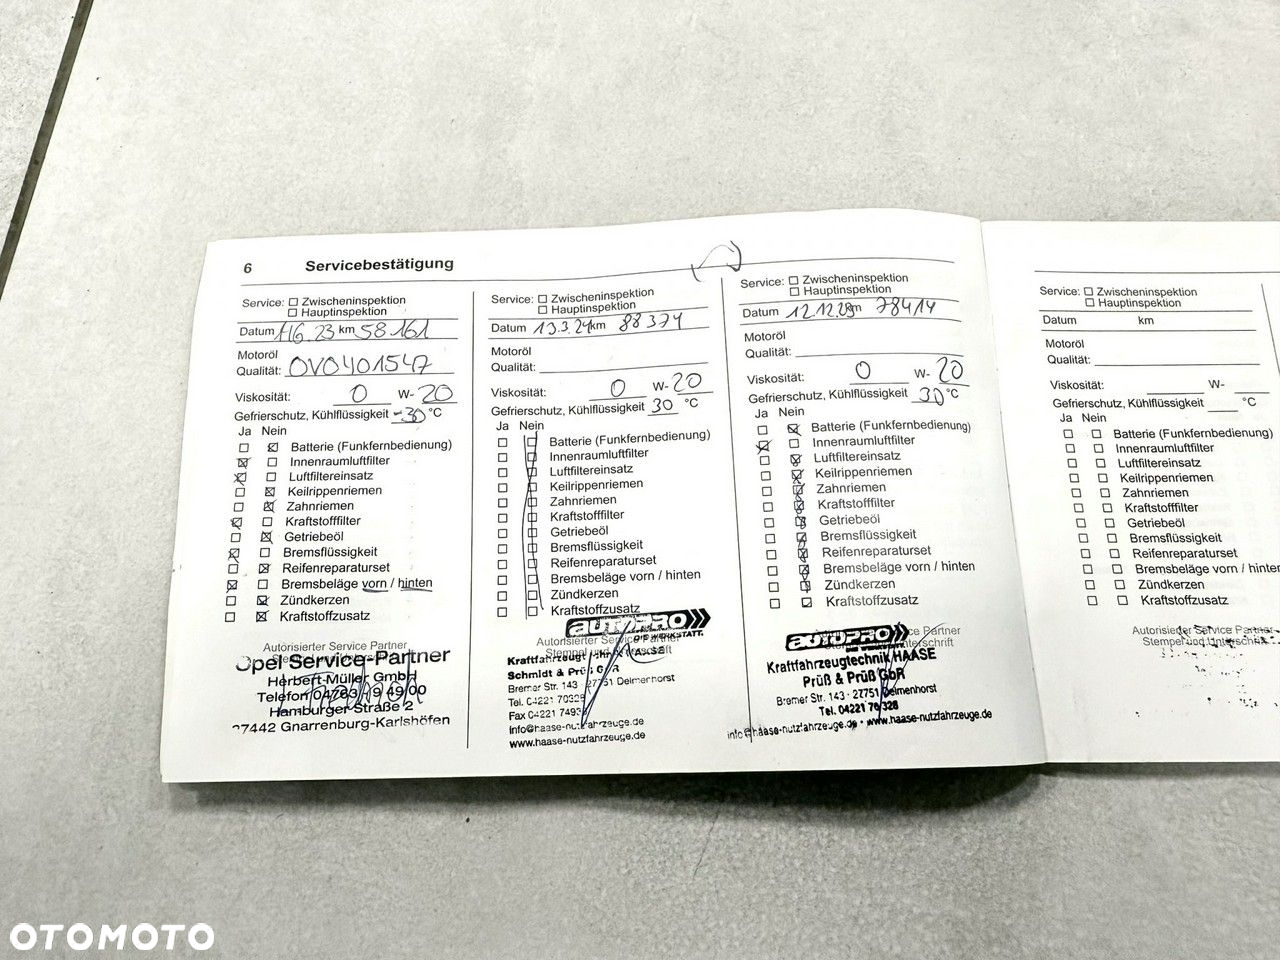 6 Servicebestätigung
Service: Zwischeninspektion
Hauptinspektion
Datum km 58.161
Motoröl
Qualität: OVO401547
Viskosität: 0 W- 20
Gefrierschutz, Kühlflüssigkeit -30 °C
Ja Nein
Batterie (Funkfernbedienung)
Innenraumluftfilter
Luftfiltereinsatz
Keilrippenriemen
Zahnriemen
Kraftstofffilter
Getriebeöl
Bremsflüssigkeit
Reifenreparaturset
Bremsbeläge vorn / hinten
Zündkerzen
Kraftstoffzusatz
Autorisierter Service Partner
Opel Service-Partner
Herbert Müller GmbH
Telefon 04763 / 9 49 00
Hamburger Straße 2
27442 Gnarrenburg-Karlshöfen
Service: Zwischeninspektion
Hauptinspektion
Datum 13.3.24 km 88 374
Motoröl
Qualität:
Viskosität: 0 W- 20
Gefrierschutz, Kühlflüssigkeit 30 °C
Ja Nein
Batterie (Funkfernbedienung)
Innenraumluftfilter
Luftfiltereinsatz
Keilrippenriemen
Zahnriemen
Kraftstofffilter
Getriebeöl
Bremsflüssigkeit
Reifenreparaturset
Bremsbeläge vorn / hinten
Zündkerzen
Kraftstoffzusatz
AUTOPRO
DIE WERKSTATT.
Autorisierter Service Partner
Stempel und Unterschrift
Kraftfahrzeugtechnik HAASE
Schmidt & Prüß GbR
Bremer Str. 143 · 27751 Delmenhorst
Tel. 04221 70328
Fax 04221
info@haase-nutzfahrzeuge.de
www.haase-nutzfahrzeuge.de
Service: Zwischeninspektion
Hauptinspektion
Datum 12.12.23 km 78414
Motoröl
Qualität:
Viskosität: 0 W- 20
Gefrierschutz, Kühlflüssigkeit 30 °C
Ja Nein
Batterie (Funkfernbedienung)
Innenraumluftfilter
Luftfiltereinsatz
Keilrippenriemen
Zahnriemen
Kraftstofffilter
Getriebeöl
Bremsflüssigkeit
Reifenreparaturset
Bremsbeläge vorn / hinten
Zündkerzen
Kraftstoffzusatz
AUTOPRO
DIE WERKSTATT.
Service Partner
Unterschrift
Kraftfahrzeugtechnik HAASE
Prüß & Prüß GbR
Bremer Str. 143 · 27751 Delmenhorst
Tel. 04221 70 328
info@haase-nutzfahrzeuge.de · www.haase-nutzfahrzeuge.de
Service: Zwischeninspektion
Hauptinspektion
Datum km
Motoröl
Qualität:
Viskosität: W-
Gefrierschutz, Kühlflüssigkeit °C
Ja Nein
Batterie (Funkfernbedienung)
Innenraumluftfilter
Luftfiltereinsatz
Keilrippenriemen
Zahnriemen
Kraftstofffilter
Getriebeöl
Bremsflüssigkeit
Reifenreparaturset
Bremsbeläge vorn / hinten
Zündkerzen
Kraftstoffzusatz
Autorisierter Service Partner
Stempel und Unterschrift
OTOMOTO